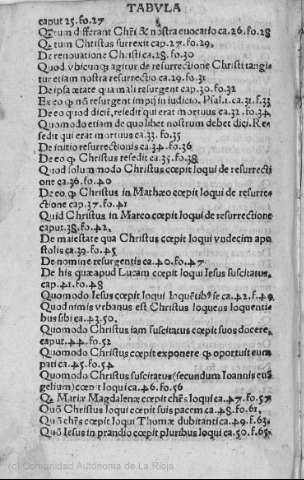 TABVLA
caput 25. fo. 27
Qꝫtum differant Chr̄i & nostra euocatio ca. 26. fo. 28
Qꝫ tum Christus surrexit cap. 27. fo. 29.
De renouatione Chr̄sti ca. 28. fo. 30
Quod vbicunqꝫ agitor de resurrectione Christi tangi
tur etiam nostra resurrectio ca. 29. fo. 31
De ipsa ætate qua mali resurgent cap. 30. fo. 32
Ex eo qꝫ nō resurgent impij in iudicio. Psal. 1. ca. 31. f. 33
De eo quod dicit, resedit qui erat mortuus ca. 32. fo. 34
Quomodo etiam de quolibet nostrum debet dici. Re
sedit qui erat mortuus ca. 33. fo. 35
De initio resurrectionis ca. 34. fo. 36
De eo qꝫ Christus resedit ca. 35. fo. 38
Quod solum modo Christus cœpit loqui de resurrecti
one ca. 36. fo. 40
De eo qꝫ Christus in Mathæo cœpit loqui de resurre
ctione cap. 37. fo. 41
Quid Christus in Marco cœpit loqui de resurrectione
caput. 38. fo. 42.
De maiestate qua Christus cœpit loqui vndecim apo
stolis ca. 39. fo. 45
De nomine resurgentis ca. 40. fo. 47
De his quæ apud Lucam cœpit loqui Iesus suscitatus
cap. 41. fo. 48
Quomodo Iesus cœpit loqui loquētibꝰ se ca. 42. f. 49.
Quod nimis vrbanus est Christus loquens loquenti
bus sibi ca. 43. 50.
Quomodo Christus iam suscitatus cœpit suos docere,
caput. 44. fo. 52
Quomodo Christus cœpit exponere qꝫ oportuit eum
pati ca. 45. fo. 54
Quomodo Christus suscitatus (secundum Ioannis euā
gelium) cœpit loqui ca. 46. fo. 56
Qꝫ Mariæ Magdalenæ cœpit chr̄s loqui ca. 47. f. 57.
Quō Christus loqui cœpit suis pacem ca. 48. fo. 61.
Quō chr̄s cœpit loqui Thomæ dubitanti ca. 49. f. 63.
Quō Iesus in prandio cœpit pluribus loqui ca. 50. f. 65.
(c) Comunidad Autónoma de La Rioja